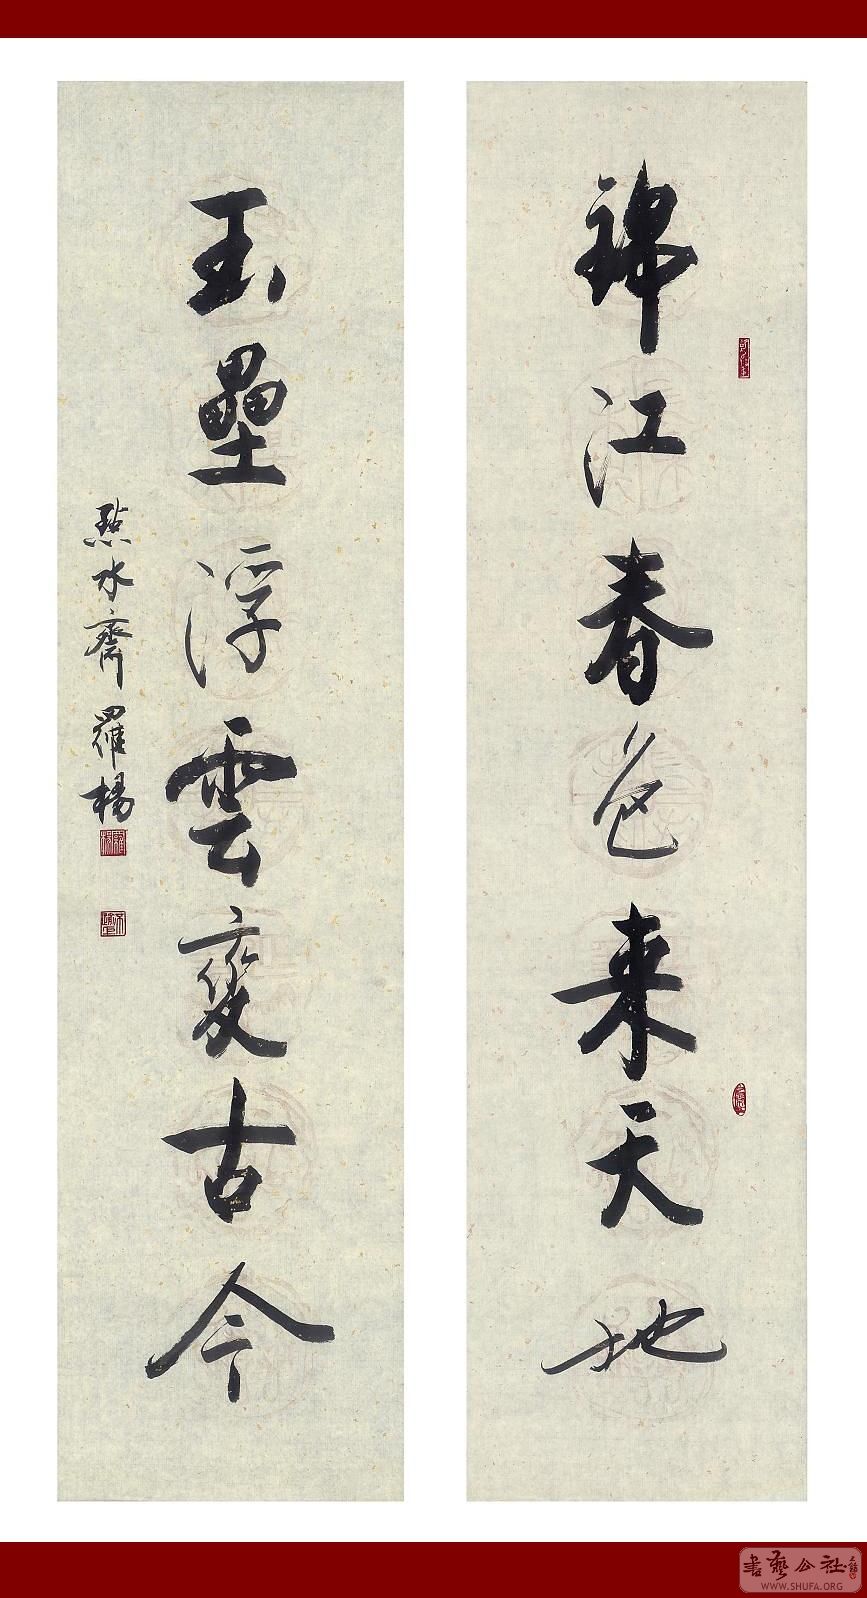 錦江春色来天地
玉壘浮雲変古今
點水齋羅楊
書藝公社
WWW.SHUFA.ORG